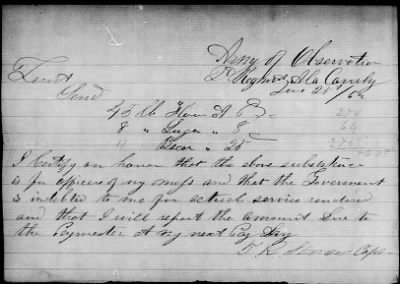 Army of Observation
Regiment Ala Cavalry
June 25 /62
Lieut
Send
43 lb Flour
8 " Sugar " 8
" 25
I certify on honor that the above subsistence
is for officers of my mess and that the Goverment
is indebted to me for actual service rendered
and that I will report the amount due to
the Paymaster at my next Pay Day
T. R. Capt